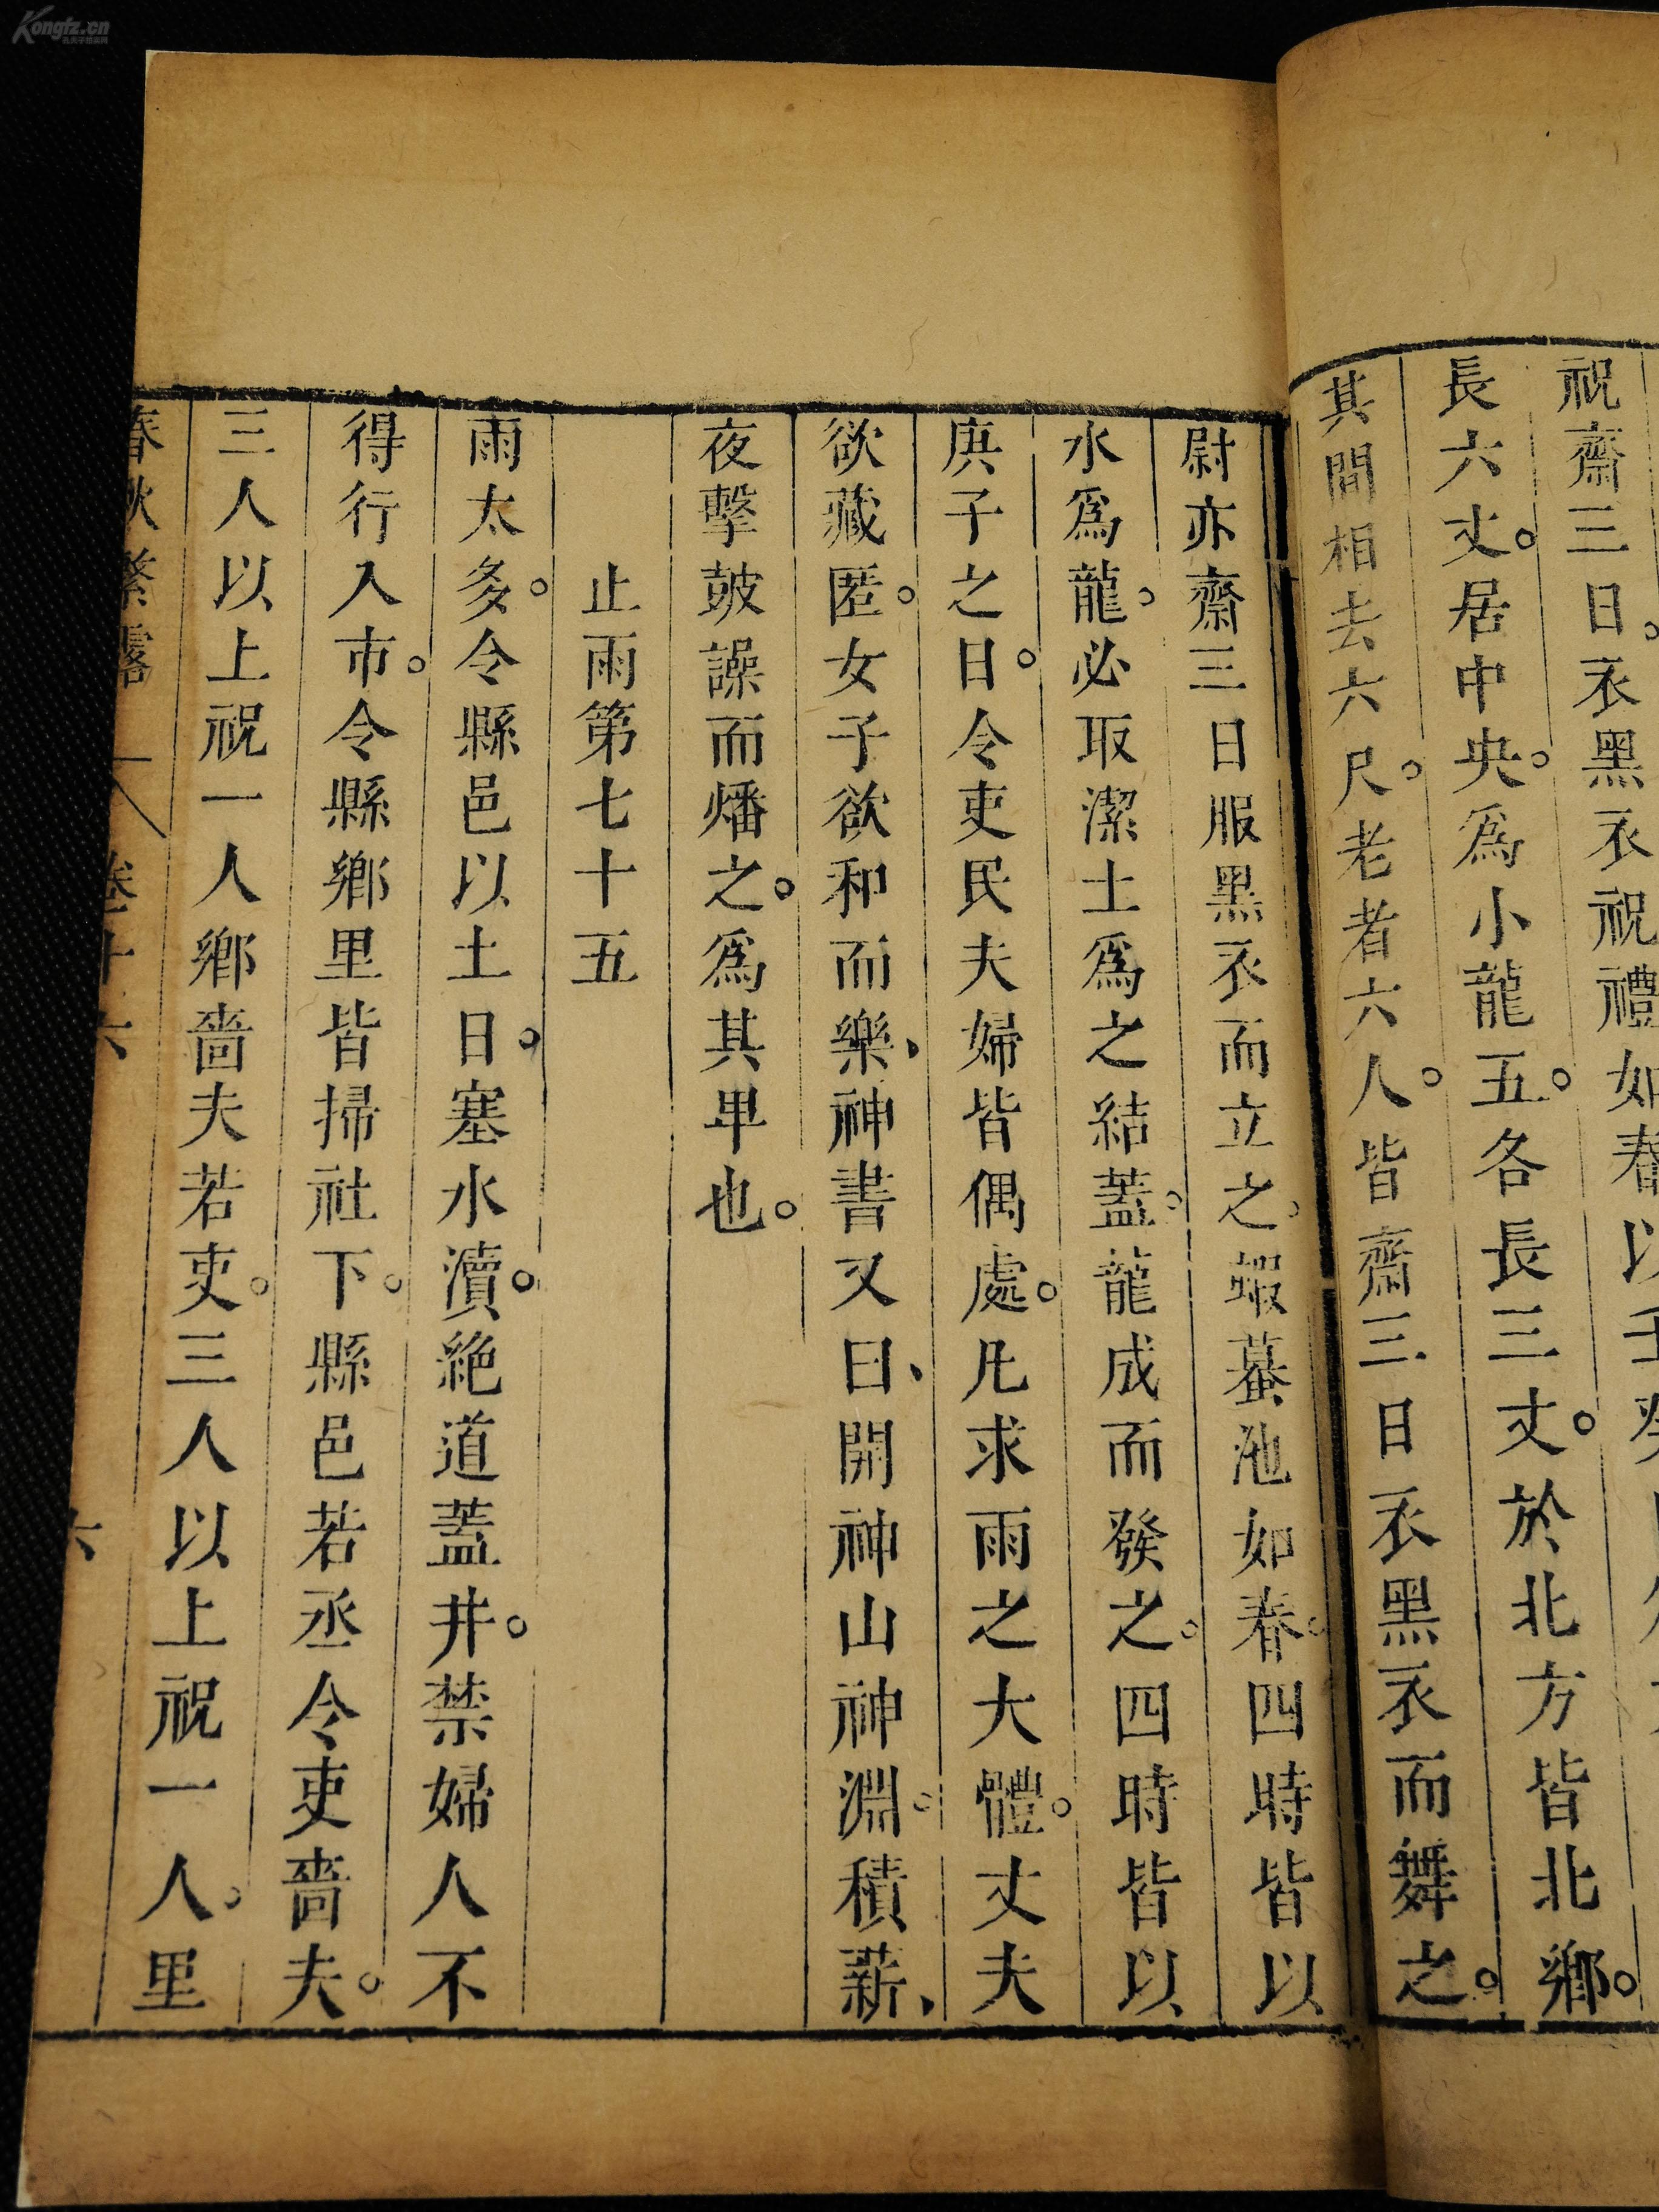 Kongfz.cn
祝齋三日。衣黑衣祝禮如春以壬癸日
長六丈。居中央。爲小龍五。各長三丈。於北方皆北鄉。
其間相去六尺。老者六人。皆齋三日衣黑衣而舞之。
尉亦齋三日服黑衣而立之。蝦蟇池如春。四時皆以
水爲龍。必取潔土爲之結蓋。龍成而發之。四時皆以
庚子之日。令吏民夫婦皆偶處。凡求雨之大體。丈夫
欲藏匿。女子欲和而樂、神書又曰、開神山神淵。積薪、
夜擊鼓譟而燔之。爲其旱也。
止雨第七十五
雨太多。令縣邑以土日。塞水瀆。絶道蓋井。禁婦人不
得行入市。令縣鄉里皆掃社下。縣邑若丞令吏嗇夫。
三人以上祝一人鄉嗇夫若吏。三人以上祝一人。里
春秋繁露 卷十六 六